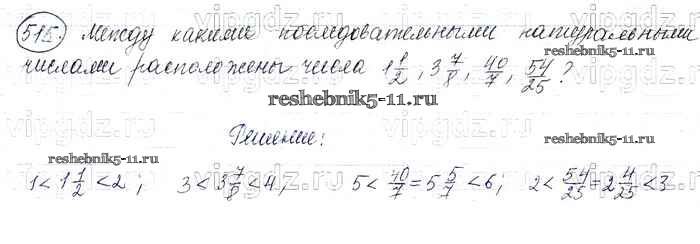 515. Между какими последовательными натуральными
числами расположены числа 1 1/2, 3 7/8, 40/7, 54/25?
reshebnik5-11.ru
Решение:
reshebnik5-11.ru
reshebnik5-11.ru
1 < 1 1/2 < 2; 3 < 3 7/8 < 4; 5 < 40/7 = 5 5/7 < 6; 2 < 54/25 = 2 4/25 < 3